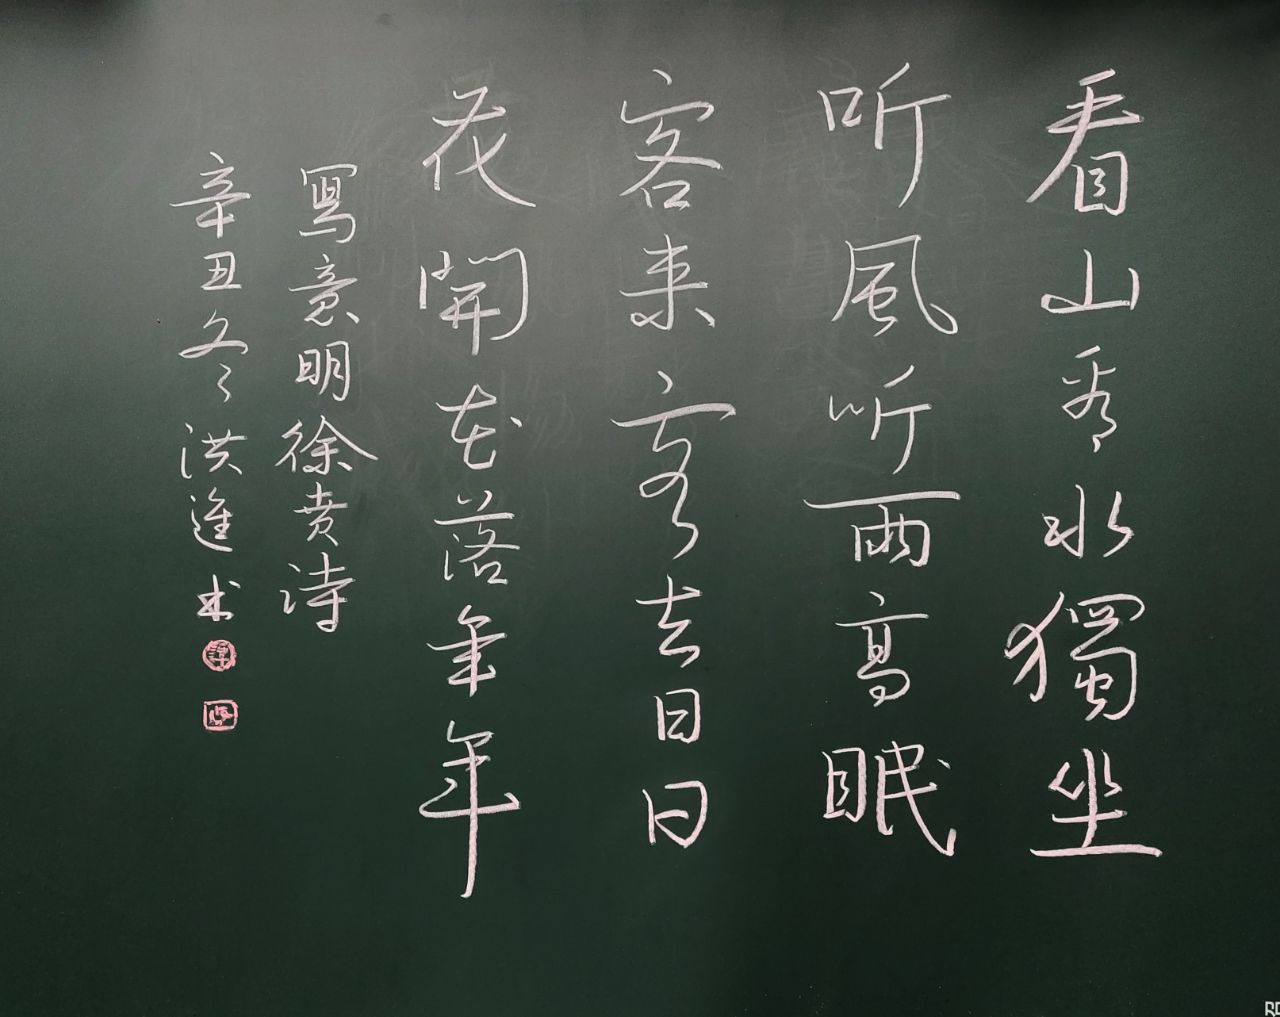 看山看水獨坐
听風听雨高眠
客来客去日日
花開花落年年
寫意明徐贲诗
辛丑冬洪進